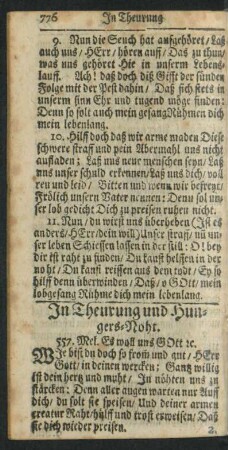 776 In Theurung
9. Nun die Seuch hat aufgehöret/ Laß
auch uns/ HErr/ hören auff/ Daß zu thun/
was uns gehöret Hie in unserm Lebens-
lauff. Ach! daß doch diß Gifft der sünden
Folge mit der Pest dahin/ Daß sich stets in
unserm sinn Ehr und tugend möge finden:
Denn so solt auch mein gesang Rühmen dich
mein lebenlang.
10. Hilff doch daß wir arme maden Diese
schwere straff und pein Abermahl uns nicht
aufladen; Laß uns neue menschen seyn/ Laß
uns unser schuld erkennen/ Laß uns dich/ voll
reu und leid/ Bitten und wenn wir befreyt/
Frölich unsern Vater nennen: Denn sol un-
ser lob gedicht Dich zu preisen ruhen nicht.
11. Nun/ du wirst uns überheben (Ist es
anders/ HErr/ dein will) Unser straff/ uñ un-
ser leben Schiessen lassen in der füll: O! bey
dir ist raht zu finden/ Du kanst helffen in der
noht/ Du kanst reissen aus dem todt/ Ey so
hilff denn überwinden/ Daß/ o GOtt/ mein
lobgesang Rühme dich mein lebenlang.
In Theurung und Hun-
gers-Noht.
557. Mel. Es woll uns GOtt ꝛc.
WIe bist du doch so from̃ und gut/ HErr
Gott/ in deinen wercken; Gantz willig
ist dein hertz und muht/ In nöhten uns zu
stärcken: Denn aller augen warten nur Auf
dich/ du solt sie speisen/ Und deiner armen
creatur Raht/ hülff und trost erweisen/ Daß
sie dich wieder preisen.
2.